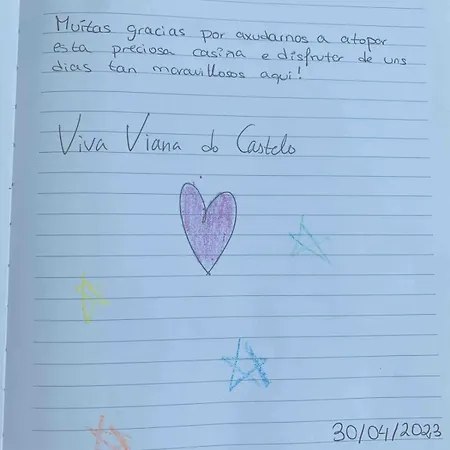 Muitas gracias por axudarnos a atopar
esta preciosa casina e disfrutar de uns
dias tan maravillosos aquí!
Viva Viana do Castelo
30/04/2023